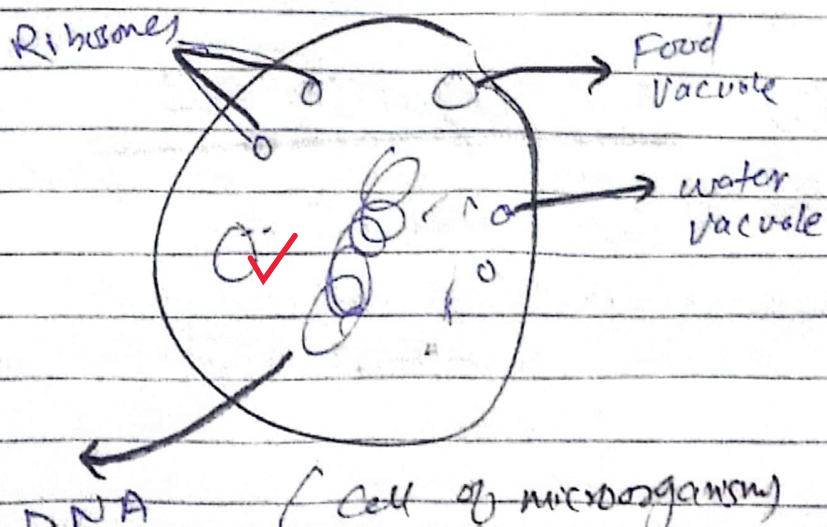 Ribosomes
Food
Vacuole
water
vacuole
DNA
( Cell of microorganism)